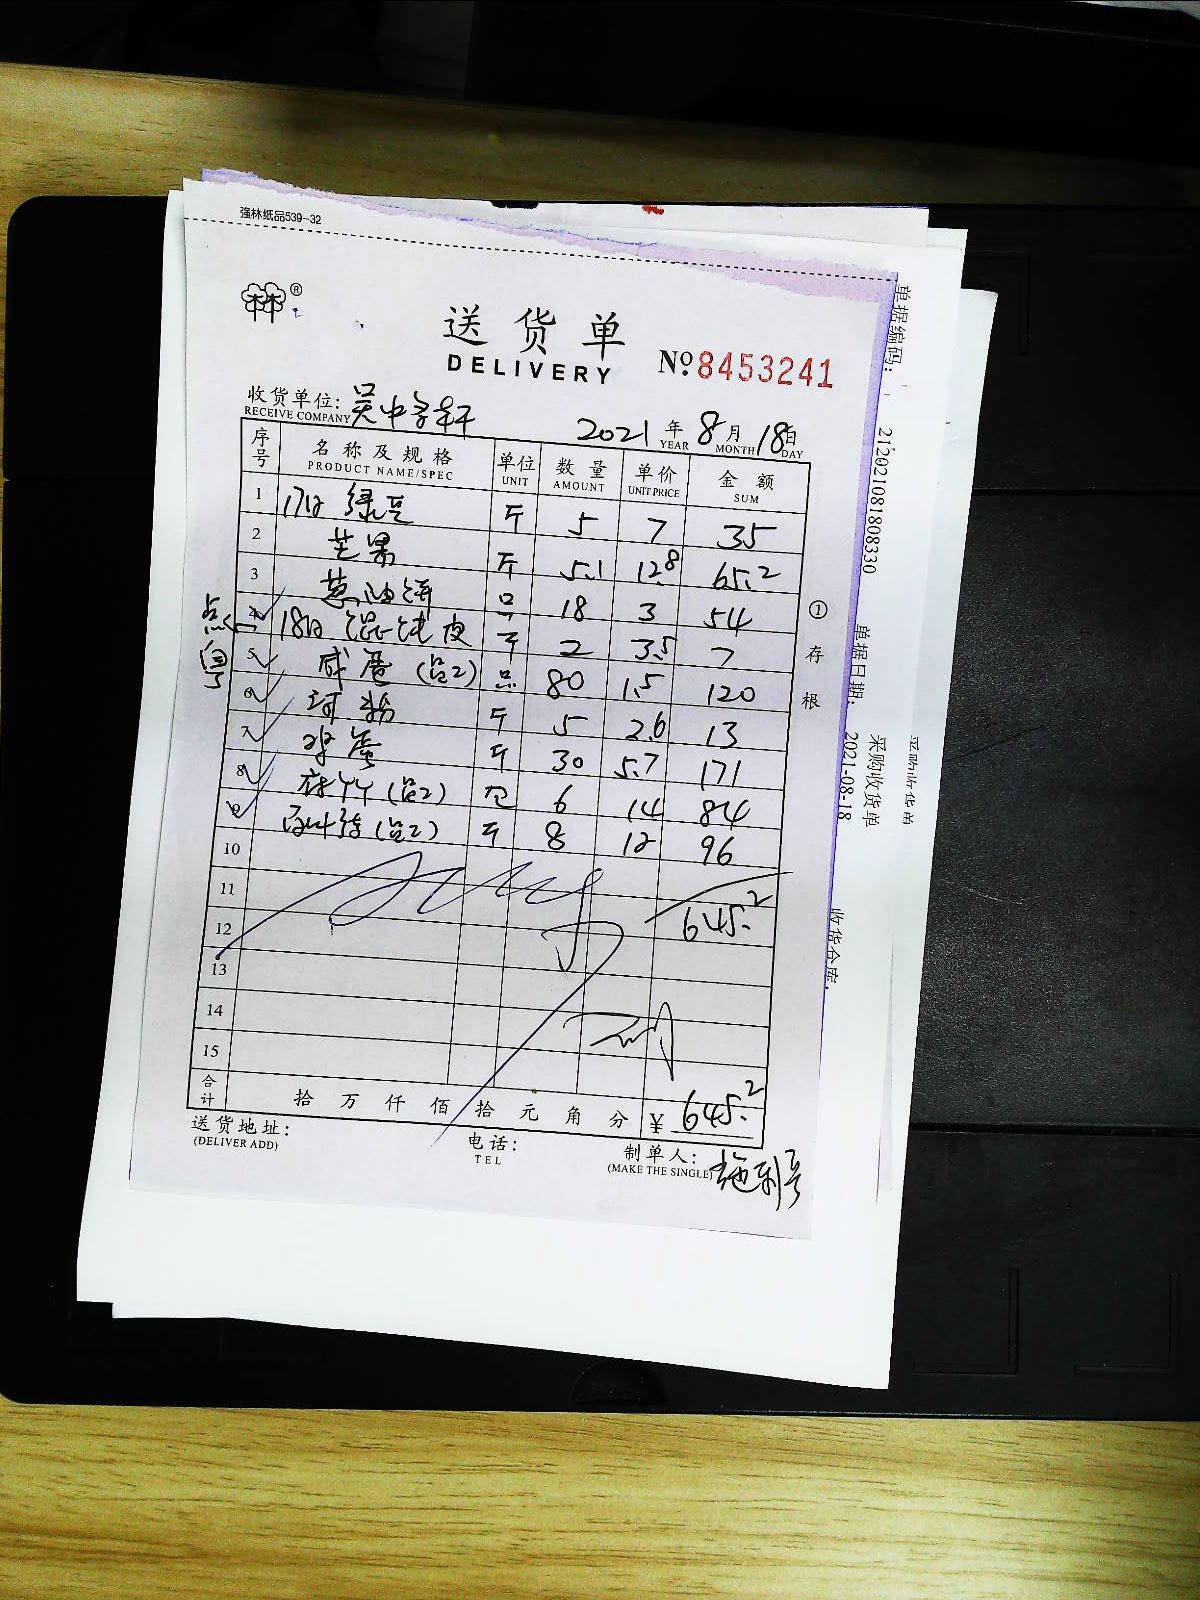 强林纸品539-32
送货单
DELIVERY
№:8453241
收货单位:吴中
RECEIVE COMPANY
2021年8月18日
YEAR MONTH DAY
序号 名称及规格 单位 数量 单价 金额
PRODUCT NAME/SPEC UNIT AMOUNT UNIT PRICE SUM
1 17日 绿豆 斤 5 7 35
2 芒果 斤 5.1 12.8 65.2
3 葱油饼 只 18 3 54
4 18日 馄饨皮 斤 2 3.5 7
5 咸蛋(品2) 只 80 1.5 120
6 河粉 斤 5 2.6 13
7 鸡蛋 斤 30 5.7 171
8 (品2) 包 6 14 84
9 百叶结(品2) 斤 8 12 96
10
11 645.2
12
13
14
15
合计 拾万仟佰拾元角分 ¥ 645.2
送货地址:
(DELIVER ADD)
电话:
TEL
制单人:
(MAKE THE SINGLE)
①存根
点心
单据编码:
212021081808330
单据日期:
2021-08-18
采购收货单
收货仓库:
采购收货单